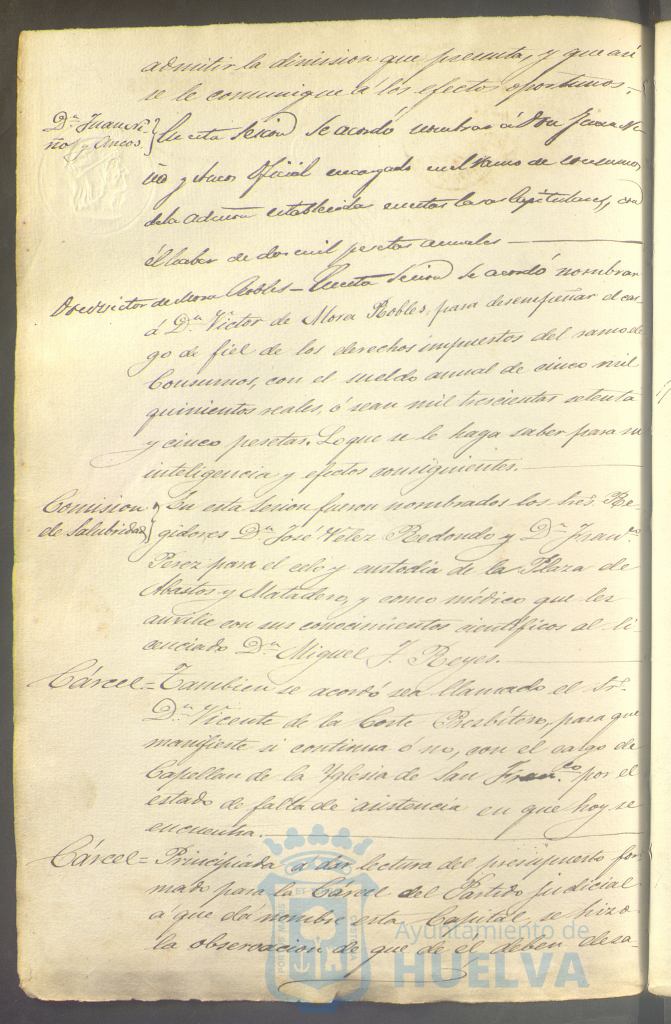 admitir la dimision que presenta, y que asi
se le comunique á los efectos oportunos.
Dn. Juan Ni-
ño y Ancos.} En esta Sesion se acordó nombrar á Don Juan Ni-
ño y Ancos Oficial encargado en el ramo de consumos
de la admon establecida en estas Casas Capitulares, con
el haber de dos mil pesetas anuales
Don Victor de Mora Robles = En esta Sesion se acordó nombrar
á Dn. Victor de Mora Robles, para desempeñar el car-
go de fiel de los derechos impuestos del ramo de
Consumos, con el sueldo anual de cinco mil
quinientos reales, ó sean mil trescientas setenta
y cinco pesetas. Lo que se le haga saber para su
inteligencia y efectos consiguientes.
Comision
de Salubridad} En esta Sesion fueron nombrados los Sres. Re-
gidores Dn. José Velez Redondo y Dn. Franco.
Perez para el celo y custodia de la Plaza de
Abastos y Matadero, y como médico que les
auxilie con sus conocimientos cientificos al li-
cenciado Dn. Miguel J. Reyes.
Cárcel = Tambien se acordó sea llamado el Sr.
Dn. Vicente de la Corte Presbítero, para que
manifieste si continua ó no, con el cargo de
Capellan de la Yglesia de San Franco. por el
estado de falta de asistencia en que hoy se
encuentra.
Cárcel = Principiada á dar lectura del presupuesto for-
mado para la Cárcel del Partido judicial
a que dá nombre esta Capital, se hizo
la observacion de que de el deben desa-
Ayuntamiento de
HUELVA